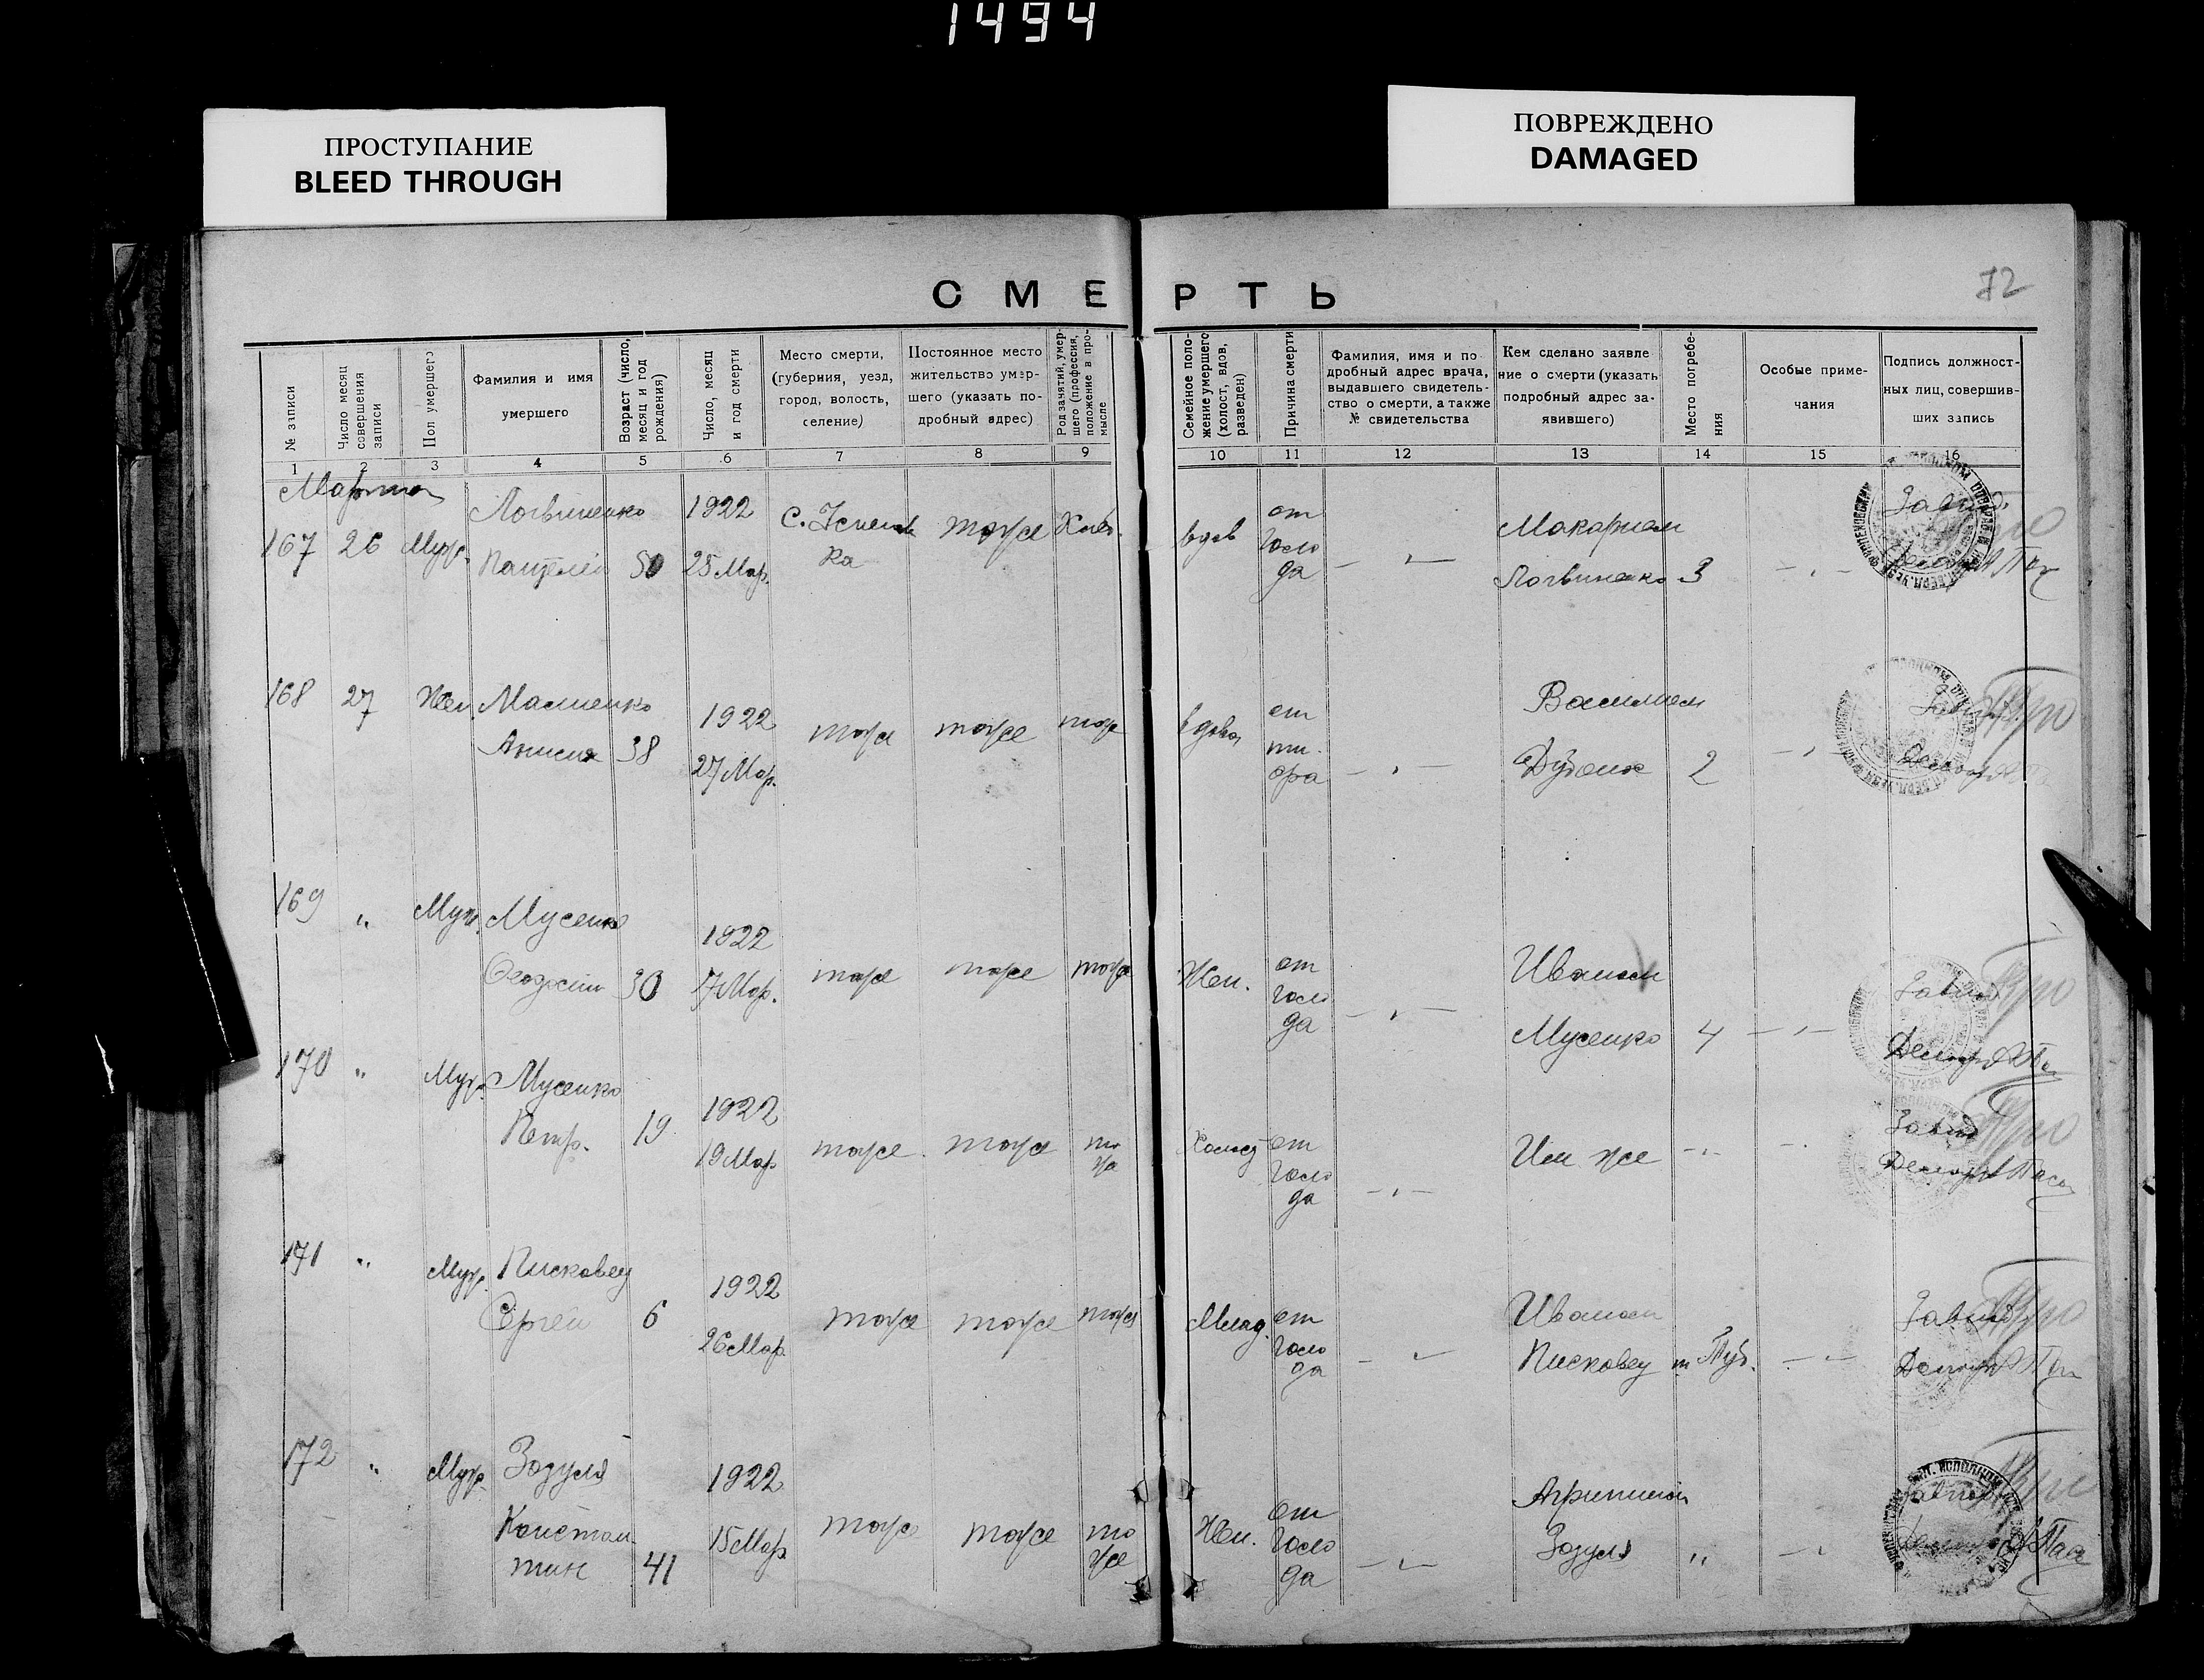 1494
ПРОСТУПАНИЕ
BLEED THROUGH
ПОВРЕЖДЕНО
DAMAGED
72
СМЕРТЬ
№ записи
Число месяц совершения записи
Пол умершего
Фамилия и имя умершего
Возраст (число, месяц и год рождения)
Число, месяц и год смерти
Место смерти, (губерния, уезд, город, волость, селение)
Постоянное место жительство умершего (указать подробный адрес)
Род занятий, умершего (профессия, положение в промысле
Семейное положение умершего (холост, вдов, разведен)
Причина смерти
Фамилия, имя и подробный адрес врача, выдавшего свидетельство о смерти, а также № свидетельства
Кем сделано заявление о смерти (указать подробный адрес заявившего)
Место погребения
Особые примечания
Подпись должностных лиц, совершивших запись
1 2 3 4 5 6 7 8 9 10 11 12 13 14 15 16
Марта
167 26 Муж. Логвиненко 50 1922 25 Мар. тоже вдов от голода Макарием Логвиненко 3
168 27 Жен. 38 1922 27 Мар. тоже тоже тоже вдова от Василием 2
169 " Муж. Мусенко 30 1922 17 Мар. тоже тоже тоже Жен. от голода Иваном Мусенко 4
170 " Муж. Мусенко Петр. 19 1922 19 Мар. тоже тоже тоже Холост от голода Им же
171 " Муж.Писковец Сергей 6 1922 26 Мар. тоже тоже тоже Млад. от голода Иваном Писковец
172 " Муж. Зозуля Константин 41 1922 15 Мар. тоже тоже тоже Жен. от голода Зозуля "